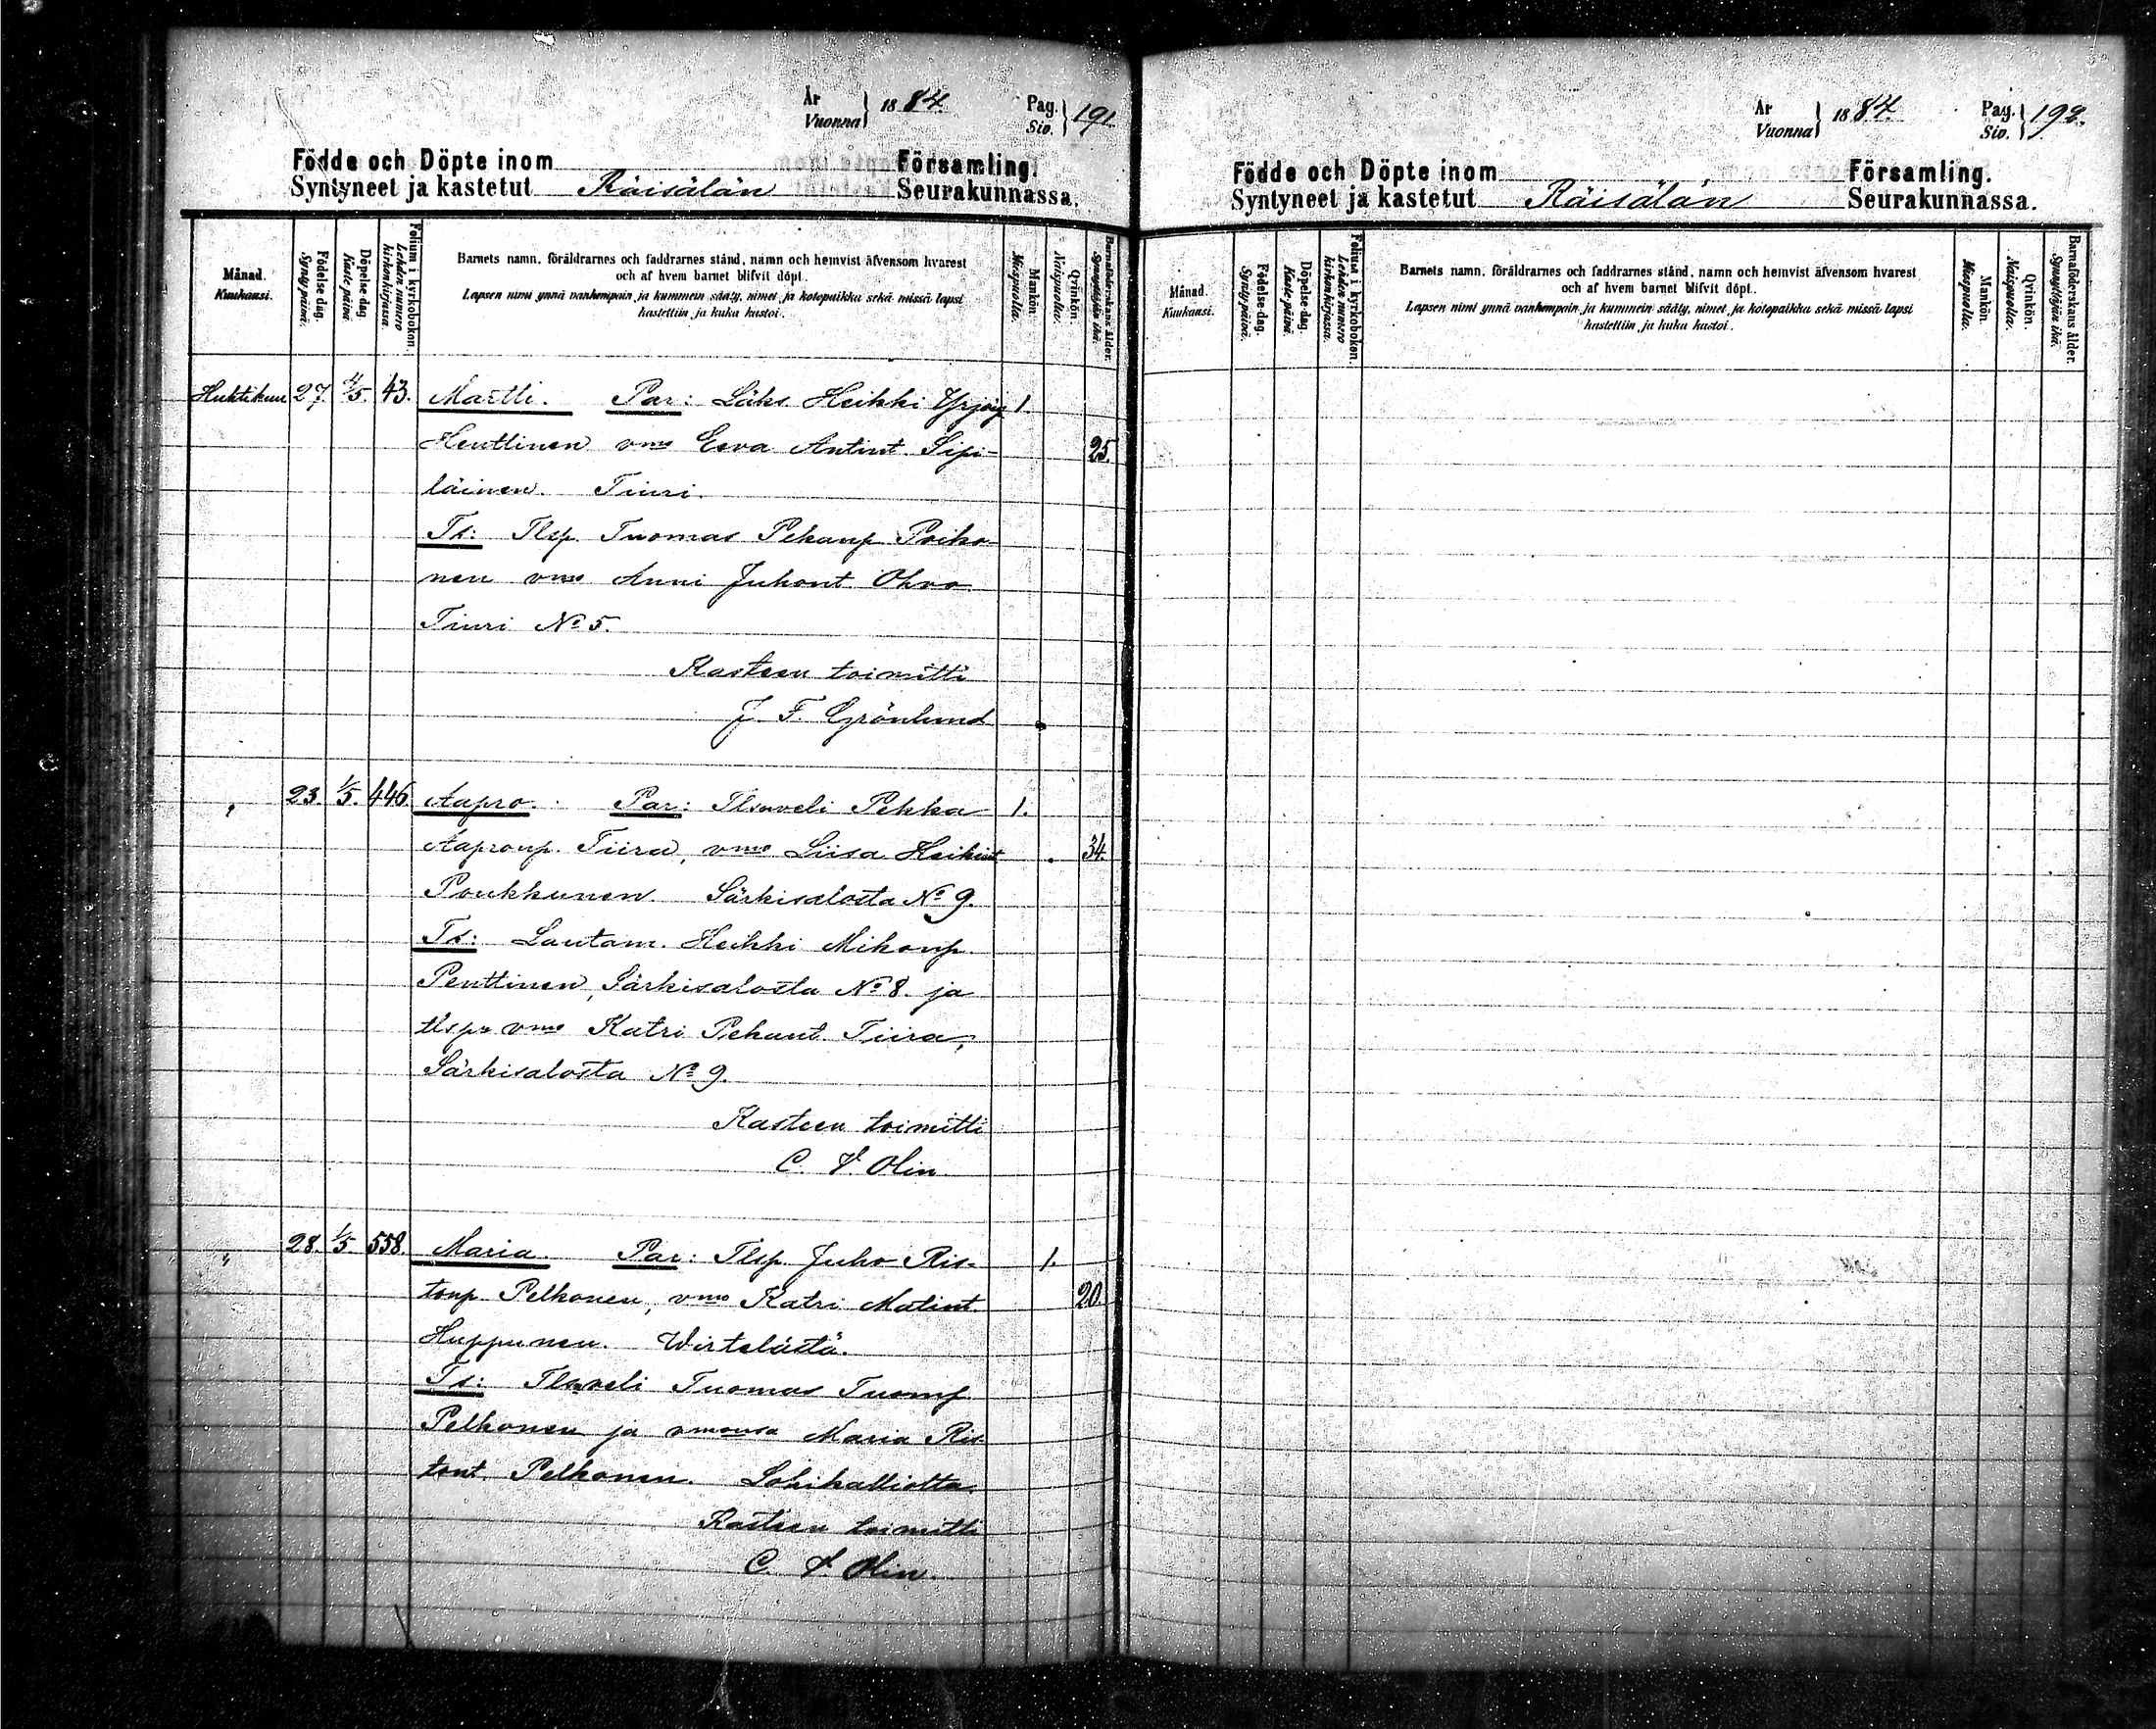 År
Vuonna } 1884.
Pag.
Siv. } 191.
Födde och Döpte inom Församling.
Syntyneet ja kastetut Räisälän Seurakunnassa.
Månad.
Kuukausi.
Födelse dag.
Syntypäivä.
Döpelse dag.
Kaste päivä.
Folium i kyrkobokon.
Lehden numero
kirkonkirjassa.
Barnets namn, föräldrarnes och faddrarnes stånd, namn och hemvist äfvensom hvarest
och af hvem barnet blifvit döpt.
Lapsen nimi ynnä vanhempain ja kummein sääty, nimet ja kotopaikka sekä missä lapsi
kastettiin ja kuka kastoi.
Mankön.
Miespuolia.
Qvinkön.
Naispuolia.
Barnaföderskans ålder.
Synnyttäjän ikä.
Huhtikuu 27. 4/5. 43. Martti. Par: Läks. Heikki Yrjönp 1.
Henttinen vmo Eeva Antint. Sipi- 25.
läinen. Tiuri.
Ts: Tlsp. Tuomas Pekanp. Poiko-
nen vmo Anni Juhont Ohvo
Tiuri No 5.
Kasteen toimitti
J. F. Grönlund
" 23. 1/5. 446. Aapro. Par: Tlsnveli Pekka 1.
Aapronp. Tiira, vmo Liisa Heikint 34.
Poukkunen. Särkisalosta No 9.
Ts: Lautam. Heikki Mikonp.
Penttinen, Särkisalosta No 8. ja
tlspn vmo Katri Pekant. Tiira,
Särkisalosta No 9.
Kasteen toimitti
C. V. Olin.
" 28. 1/5. 558. Maria. Par: Tlsp. Juho Ris- 1.
tonp. Pelkonen, vmo Katri Matint 20.
Huppunen. Wirtelästä.
Ts: Tlsnveli Tuomas Tuomp.
Pelkonen ja vmonsa Maria Ris-
tont. Pelkonen. Lohikalliotta.
Kasteen toimitti
C. V. Olin.
År
Vuonna } 1884.
Pag.
Siv. } 192.
Födde och Döpte inom Församling.
Syntyneet ja kastetut Räisälän Seurakunnassa.
Månad.
Kuukausi.
Födelse-dag.
Synty-päivä.
Döpelse-dag.
Kaste-päivä.
Folium i kyrkobokon.
Lehden numero
kirkonkirjassa.
Barnets namn, föräldrarnes och faddrarnes stånd, namn och hemvist äfvensom hvarest
och af hvem barnet blifvit döpt.
Lapsen nimi ynnä vanhempain ja kummein sääty, nimet ja kotopaikka sekä missä lapsi
kastettiin ja kuka kastoi.
Mankön.
Miespuolia.
Qvinkön.
Naispuolia.
Barnaföderskans ålder.
Synnyttäjän ikä.